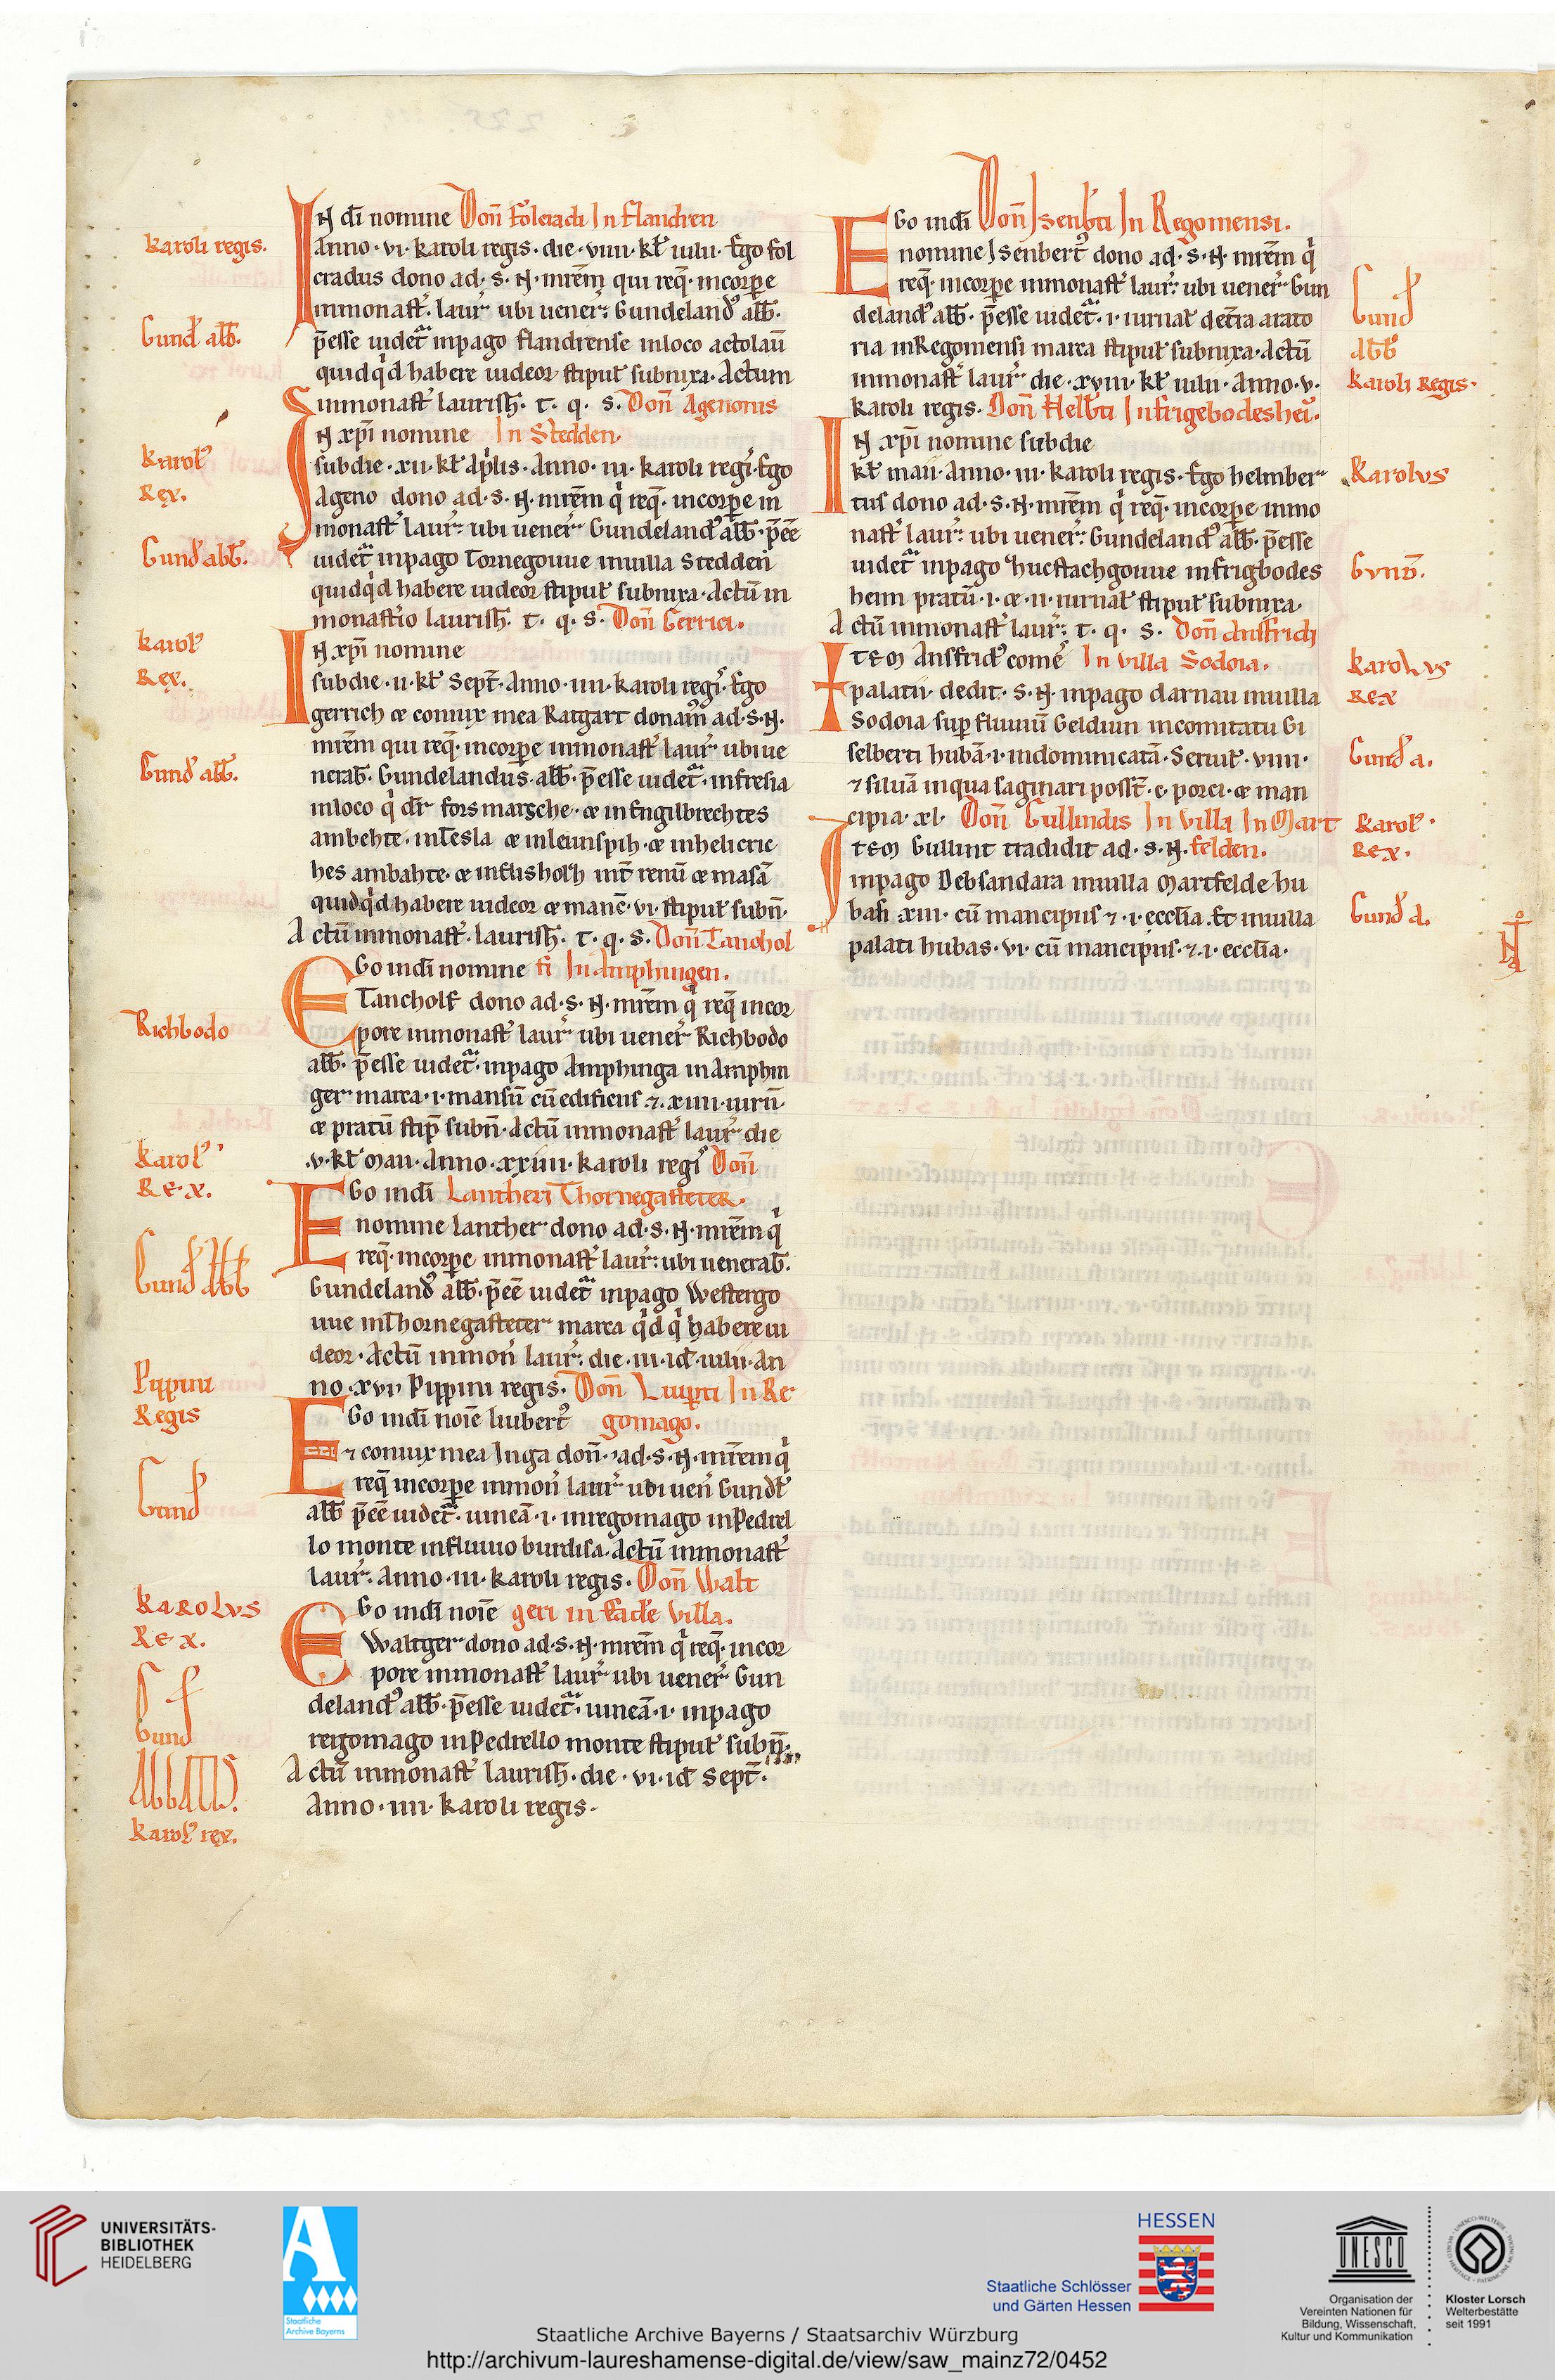 N dī nomine Don̄ Folcradi In flandren
Anno · vi · karoli regis · die · viiii · kł iulii · Ego fol
cradus dono ad · S · N · mrēm qui req̄ · incorpe
inmonast̄ · laur̄ ubi uener̄ Gundeland' abb̄ ·
p̄esse uidet̄ inpago flandrense inloco actolaū
quidqd habere uideor stipul̄ subnixa · Actum
inmonast̄ laurish̄ · t · q · s · Don̄ Agenonis
N xp̄i nomine In Stedden
subdie · xii · kł Aplis · Anno · iii · karoli regi' · Ego
Ageno dono ad · S · N · mrēm q̇ req̄ · incorpe in
monast̄ laur̄ ubi uener̄ Gundeland' abb̄ · p̄eē
uidet̄ inpago Tornegouue inuilla Stedden
quidqd habere uideor stipul̄ subnixa · Actū in
monastio laurish̄ · t · q · s · Don̄ Gerrici ·
N xp̄i nomine
subdie · ii · kł Sept̄ · Anno · iiii · karoli regi' · Ego
gerrich & coniux mea Ratgart donam̄ ad · S · N ·
mrēm qui req̄ · incorpe inmonast̄ laur̄ ubi ue
nerab̄ · Gundelandus · abb̄ · p̄esse uidet̄ · infresia
inloco q̇ dr̄ fors marsche · & in Engilbrechtes
ambehte · in Tesla & inleunspih · & inhelicric
hes ambahte · & infushosh int̄ renū & masā
quidqd habere uideor & manc̄ · vi · stipul̄ subn̄ ·
Actū inmonast̄ · laurish̄ · t · q · s · Don̄ Tanchol
Go indī nomine fi In Amphingen ·
Tancholf dono ad · S · N · mrēm q̇ req̄ incor
pore inmonast̄ laur̄ ubi uener̄ Richbodo
abb̄ · p̄esse uidet̄ · inpago Amphinga in Amphin
ger marca · i · mansū cū edificiis 7 · xiiii · iurn̄ ·
& pratū stip̄ subn̄ · Actū inmonast̄ laur̄ die
· v · kł Maii · Anno · xxiiii · karoli regi' Don̄
Go indī Lantheri Thornegasteter ·
nomine lanther dono ad · S · N · mrēm q̇
req̄ · incorpe inmonast̄ laur̄ : ubi uenerab̄ ·
Gundeland' abb̄ · p̄eē uidet̄ inpago Westergo
uue in Thornegasteter marca qd q̇ habere ui
deor · Actū inmon̄ laur̄ · die · iii · id iulii · An
no · xvi · Pippini regis · Don̄ Luipti In Re
Go indī noīe liubert' gomago ·
7 coniux mea Inga don̄ · ad · S · N · mrēm q̇
req̄ incorpe inmon̄ laur̄ ubi uen̄ Gundł
abb̄ p̄eē uidet̄ · uineā · i · inregomago inPedrel
lo monte influuio burdisa · Actū inmonast̄
laur̄ · Anno · iii · karoli regis · Don̄ Walt
Go indī noīe geri in Eade villa ·
Waltger dono ad · S · N · mrēm q̇ req̄ · incor
pore inmonast̄ laur̄ ubi uener̄ Gun
deland' abb̄ · p̄esse uidet̄ · uineā · i · inpago
reigomago inPedrello monte stipul̄ subn̄ ·
Actū inmonast̄ laurish̄ · die · vi · id Sept̄ ·
Anno · iiii · karoli regis ·
karoli regis ·
Gund' abb̄ ·
karol'
Rex ·
Gund' abb̄ ·
karol'
Rex ·
Gund' abb̄ ·
Richbodo
karol'
Rex ·
Gund' Abb
Pippini
Regis
Gund'
Karolvs
Rex ·
Gund
Abbatis ·
Karol' rex ·
Go indī Don̄ Isenbti In Regomensi ·
nomine Isenbert' dono ad · S · N · mrēm q̇
req̄ · incorpe inmonast̄ laur̄ : ubi uener̄ Gun
deland' abb̄ · p̄esse uidet̄ · i · iurnal̄ de tr̄ra arato
ria inRegomensi marca stipul̄ subnixa · Actū
inmonast̄ laur̄ die · xviii · kł iulii · Anno · v ·
karoli regis · Don̄ Helb̄ti In frigebodesheī ·
N xp̄i nomine subdie
kł maii · Anno · iii · karoli regis · Ego helmber
tus dono ad · S · N · mrēm q̇ req̄ · incorpe inmo
nast̄ laur̄ : ubi uener̄ : Gundeland' abb̄ · p̄esse
uidet̄ inpago hucstachgouue infrigbodes
heim pratū · i · & · ii · iurnal̄ stipul̄ subnixa ·
Actū inmonast̄ laur̄ : t · q · s · Don̄ Ansfrich
tem Ansfrid' come' In villa Sodoia ·
palatii · dedit · S · N · inpago darnau inuilla
Sodoia sup fluuiū Geldiun incomitatu Gi
selberti hubā · i · indominicatā · Seruil̄ · viiii ·
7 siluā inqua saginari poss̄t · c · porci · & man
cipia · xl · Don̄ Gullindis In villa In Mart
tem Gullint tradidit ad · S · N · felden ·
inpago Debsandara inuilla Martfelde hu
bas xiii · cū mancipiis 7 · i · ecclīa · Et inuilla
palati hubas · vi · cū mancipiis · 7 · i · ecclīa ·
Gund'
Abb'
karoli Regis ·
Karolvs
Gvnd ·
Karolvs
Rex
Gund' a ·
Karol' ·
Rex ·
Gund' a ·
UNIVERSITÄTS-
BIBLIOTHEK
HEIDELBERG
A
Staatliche
Archive Bayerns
HESSEN
Staatliche Schlösser
und Gärten Hessen
UNESCO
Organisation der
Vereinten Nationen für
Bildung, Wissenschaft,
Kultur und Kommunikation
Kloster Lorsch
Welterbestätte
seit 1991
Staatliche Archive Bayerns / Staatsarchiv Würzburg
http://archivum-laureshamense-digital.de/view/saw_mainz72/0452